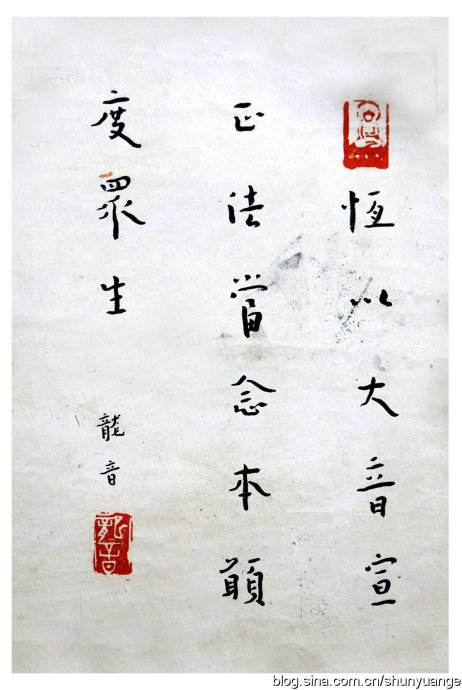 恆以大音宣
正法當念本願
度眾生
龍音
龍音
blog.sina.com.cn/shunyuange